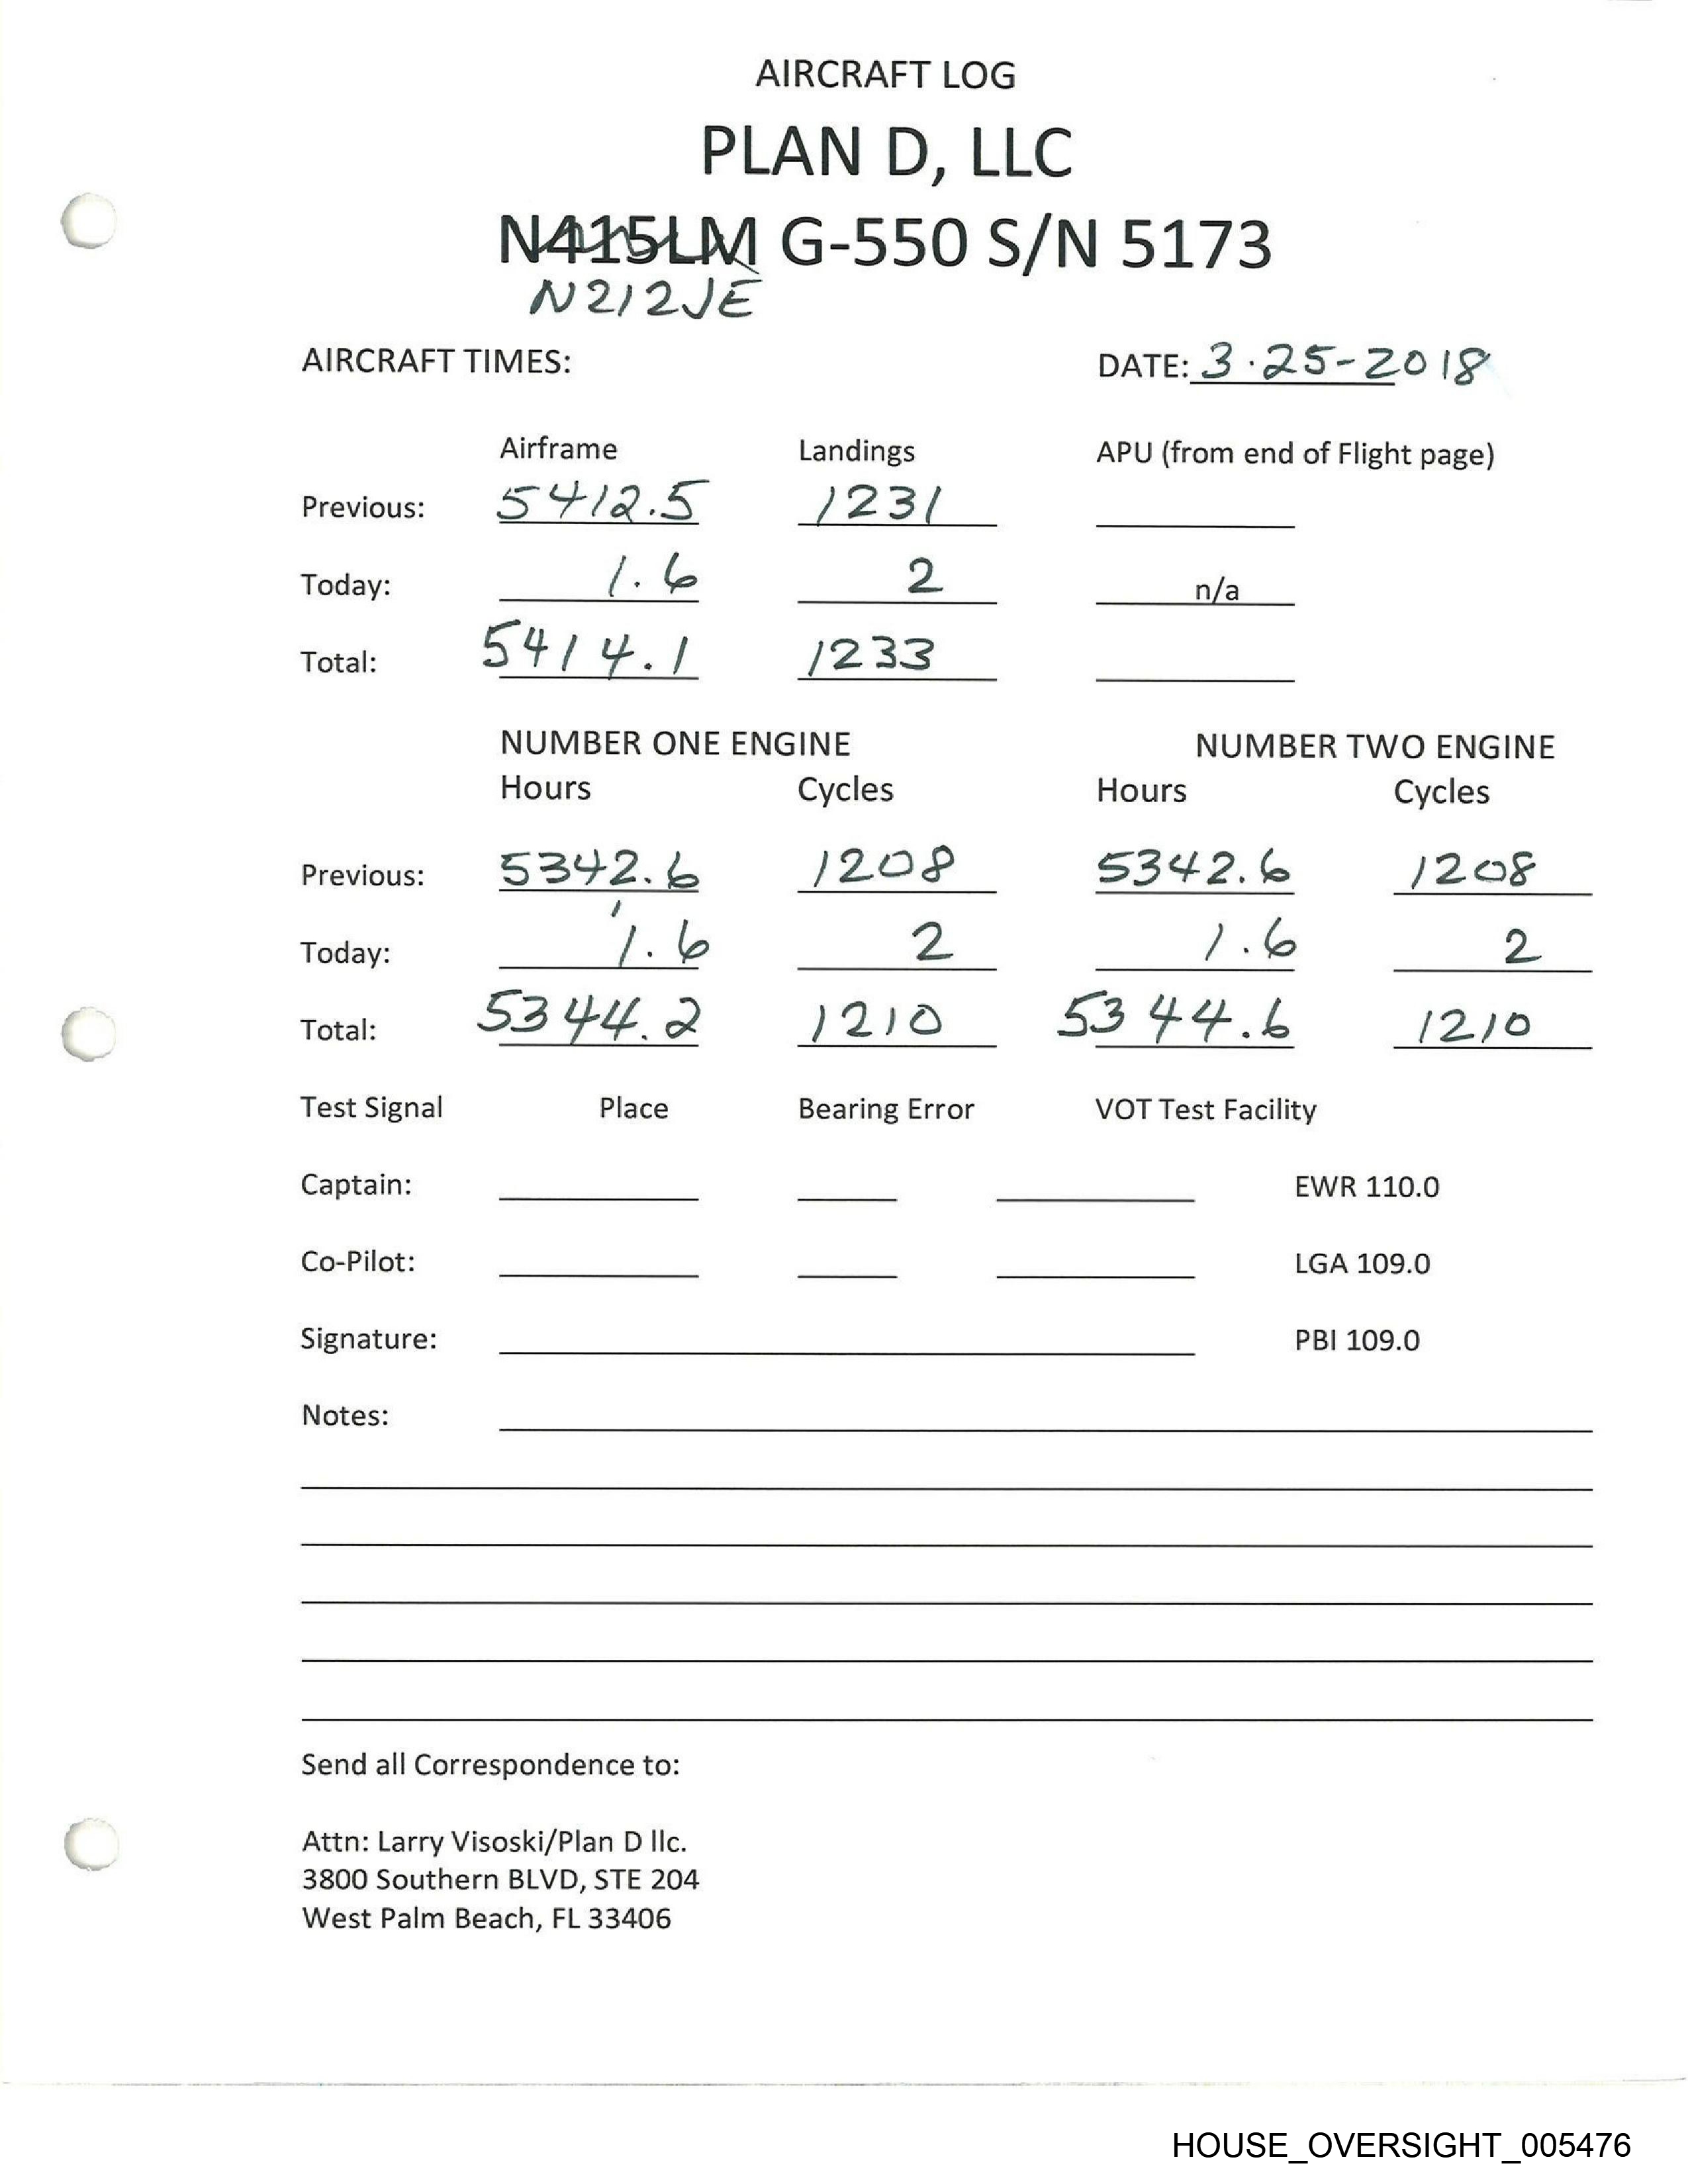 AIRCRAFT LOG
PLAN D, LLC
N415LM G-550 S/N 5173
N212JE
AIRCRAFT TIMES: DATE: 3-25-2018
Airframe Landings APU (from end of Flight page)
Previous: 5412.5 1231
Today: 1.6 2 n/a
Total: 5414.1 1233
NUMBER ONE ENGINE NUMBER TWO ENGINE
Hours Cycles Hours Cycles
Previous: 5342.6 1208 5342.6 1208
Today: 1.6 2 1.6 2
Total: 5344.2 1210 5344.6 1210
Test Signal Place Bearing Error VOT Test Facility
Captain: EWR 110.0
Co-Pilot: LGA 109.0
Signature: PBI 109.0
Notes:
Send all Correspondence to:
Attn: Larry Visoski/Plan D llc.
3800 Southern BLVD, STE 204
West Palm Beach, FL 33406
HOUSE_OVERSIGHT_005476